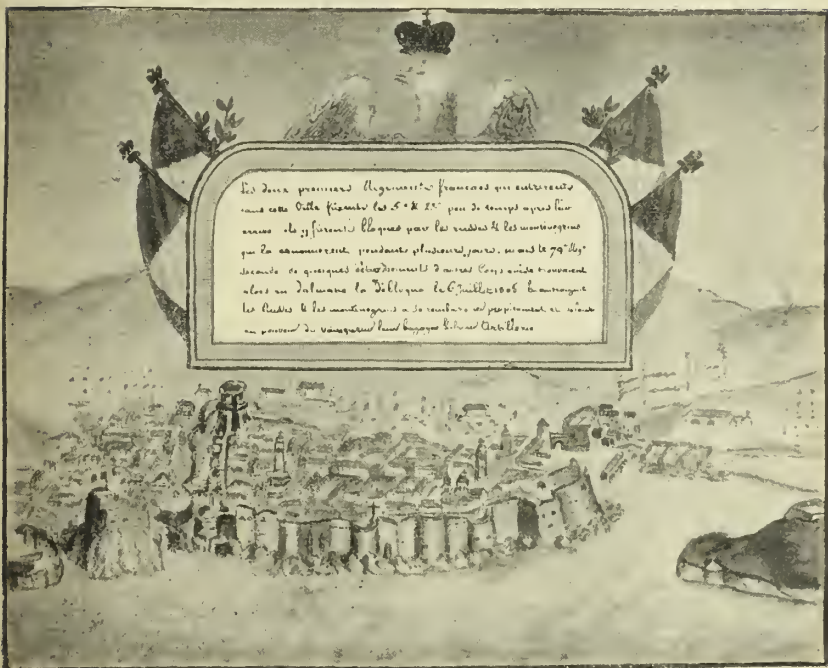 Les deux premiers Regiments francais qui entrerent
dans cette Ville furent les 5e & 23e peu de temps apres leur
arrivé ils y furent bloques par les russes & les montenegrins
qui la cannonerent pendant plusieurs jours, mais le 79e Regt
seconde de quelques detachements d'autres Corps qui se trouvaient
alors en Dalmatie la Débloqua le 6 Juillet 1806 & contraignit
les Russes & les montenegrins a se rembarquer precipitament en
au pouvoir du vainqueur leur bagages & leur Artillerie